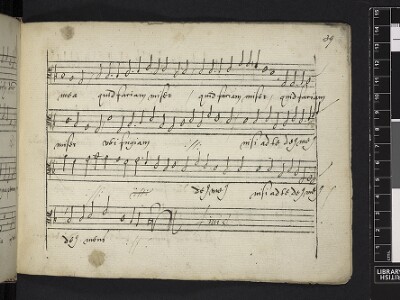 39
mea quid faciam miser / quid faciam miser / quid faciam
miser ubi fugiam :||: nisi ad te deus meus
:||: deus meus nisi ad te deus meus
deus meus :||:
LIBRARY